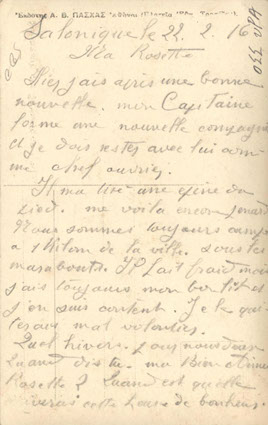 Ἐκδότης Α. Β. ΠΑΣΧΑΣ
Salonique le 22. 2. 16
Ma Rosette
Hier jais apris une bonne
nouvelle. mon Capitaine
forme une nouvelle compagnie
et je dois rester avec lui com
me chef ouvrier
Il ma tiré une epine du
pied. me voila encor
Nous sommes toujours campé
a 1 kilom de la ville. sous les
marabouts. Il fait froid mais
jais toujours mon bon lit et
j'en suis content. Je le
mal volontiers.
Quel hiver.
Quand dis tu. ma Bien aimée
Rosette? Quand est que
cette heure de bonheur.